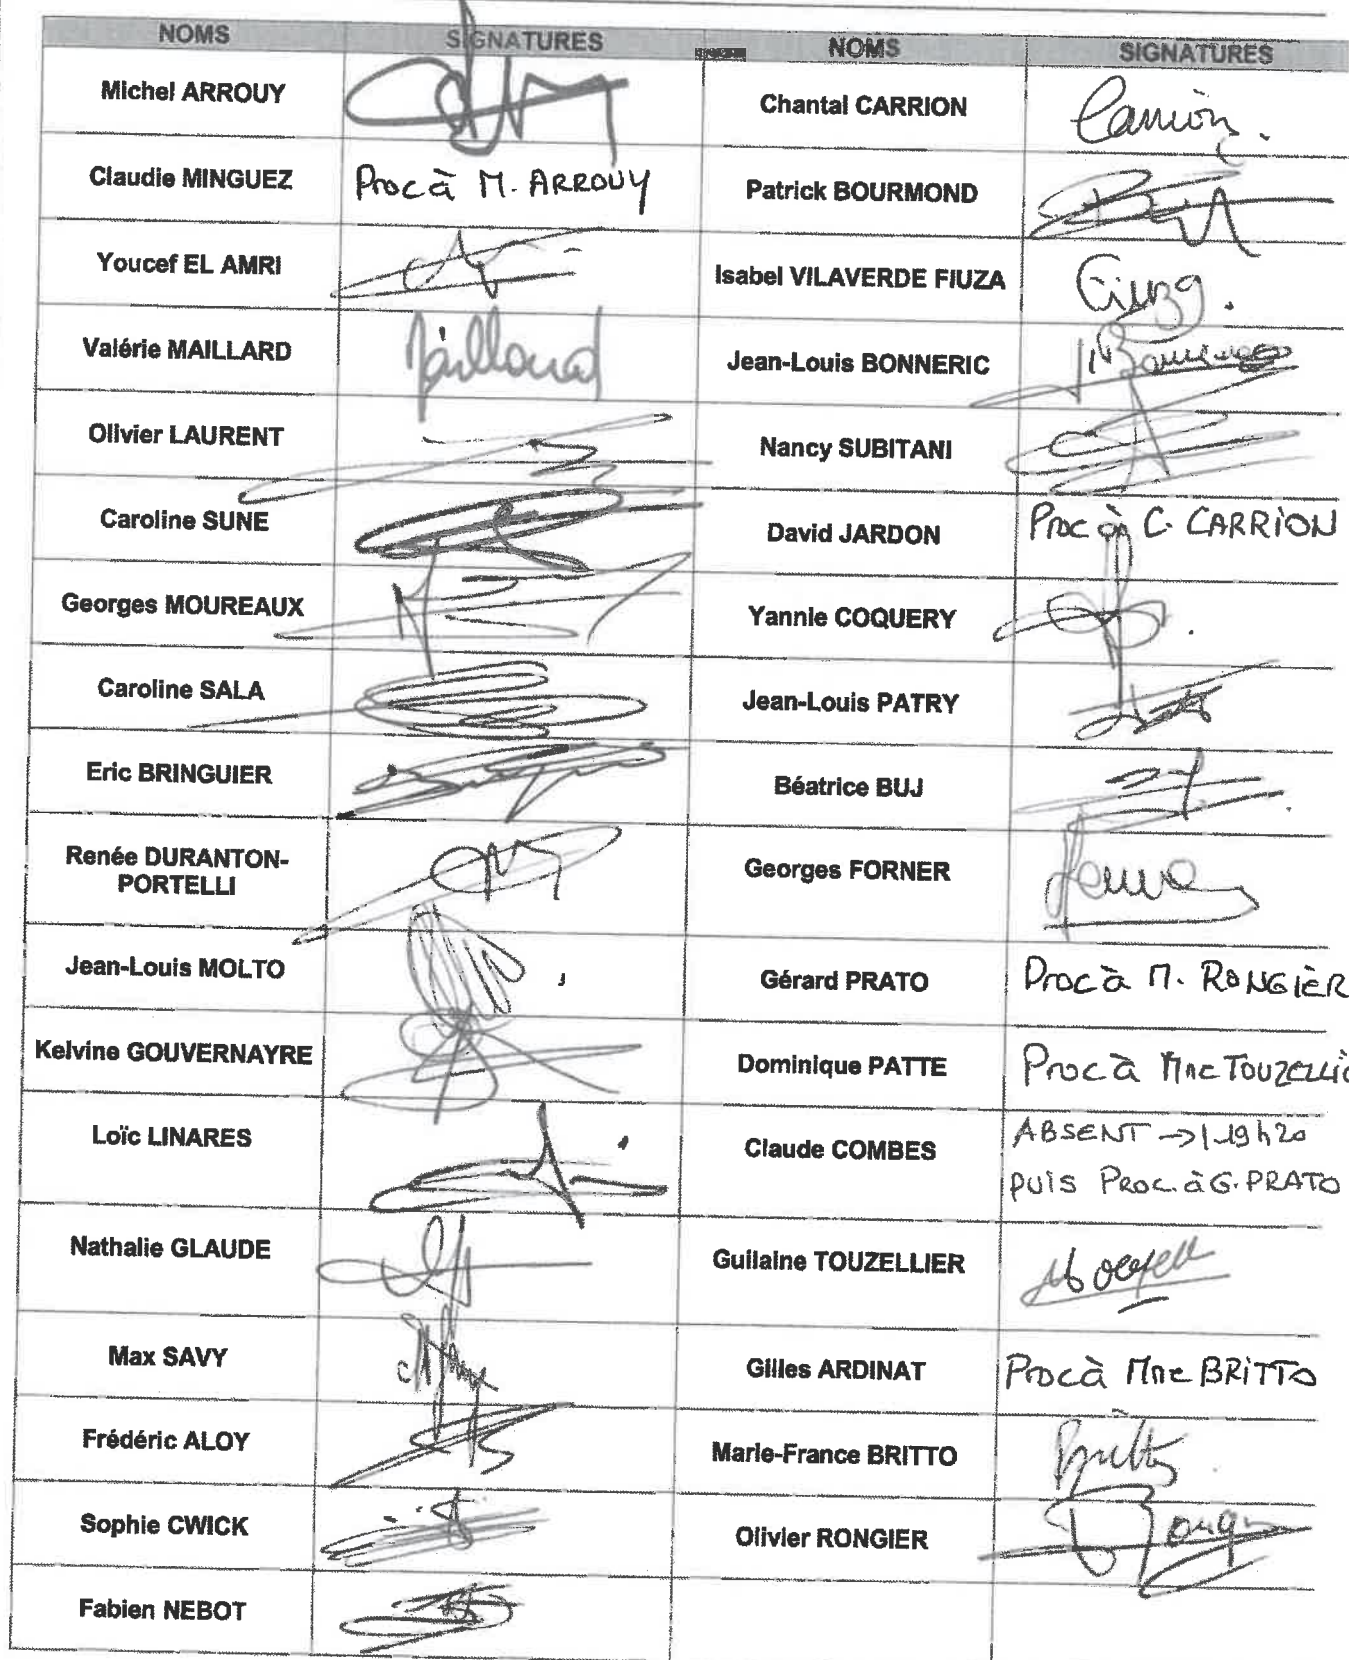 NOMS SIGNATURES NOMS SIGNATURES
Michel ARROUY Chantal CARRION Carrion.
Claudie MINGUEZ Proc à M. ARROUY Patrick BOURMOND
Youcef EL AMRI Isabel VILAVERDE FIUZA Fiuza.
Valérie MAILLARD Maillard Jean-Louis BONNERIC
Olivier LAURENT Nancy SUBITANI
Caroline SUNE David JARDON Proc à C. CARRION
Georges MOUREAUX Yannie COQUERY
Caroline SALA Jean-Louis PATRY
Eric BRINGUIER Béatrice BUJ
Renée DURANTON-
PORTELLI Georges FORNER
Jean-Louis MOLTO Gérard PRATO Proc à M. RONGIER
Kelvine GOUVERNAYRE Dominique PATTE Proc à Mme TOUZELLIE
Loïc LINARES Claude COMBES ABSENT -> 19h20
puis Proc. à G. PRATO
Nathalie GLAUDE Guilaine TOUZELLIER
Max SAVY Gilles ARDINAT Proc à Mme BRITTO
Frédéric ALOY Marie-France BRITTO Britto
Sophie CWICK Olivier RONGIER
Fabien NEBOT